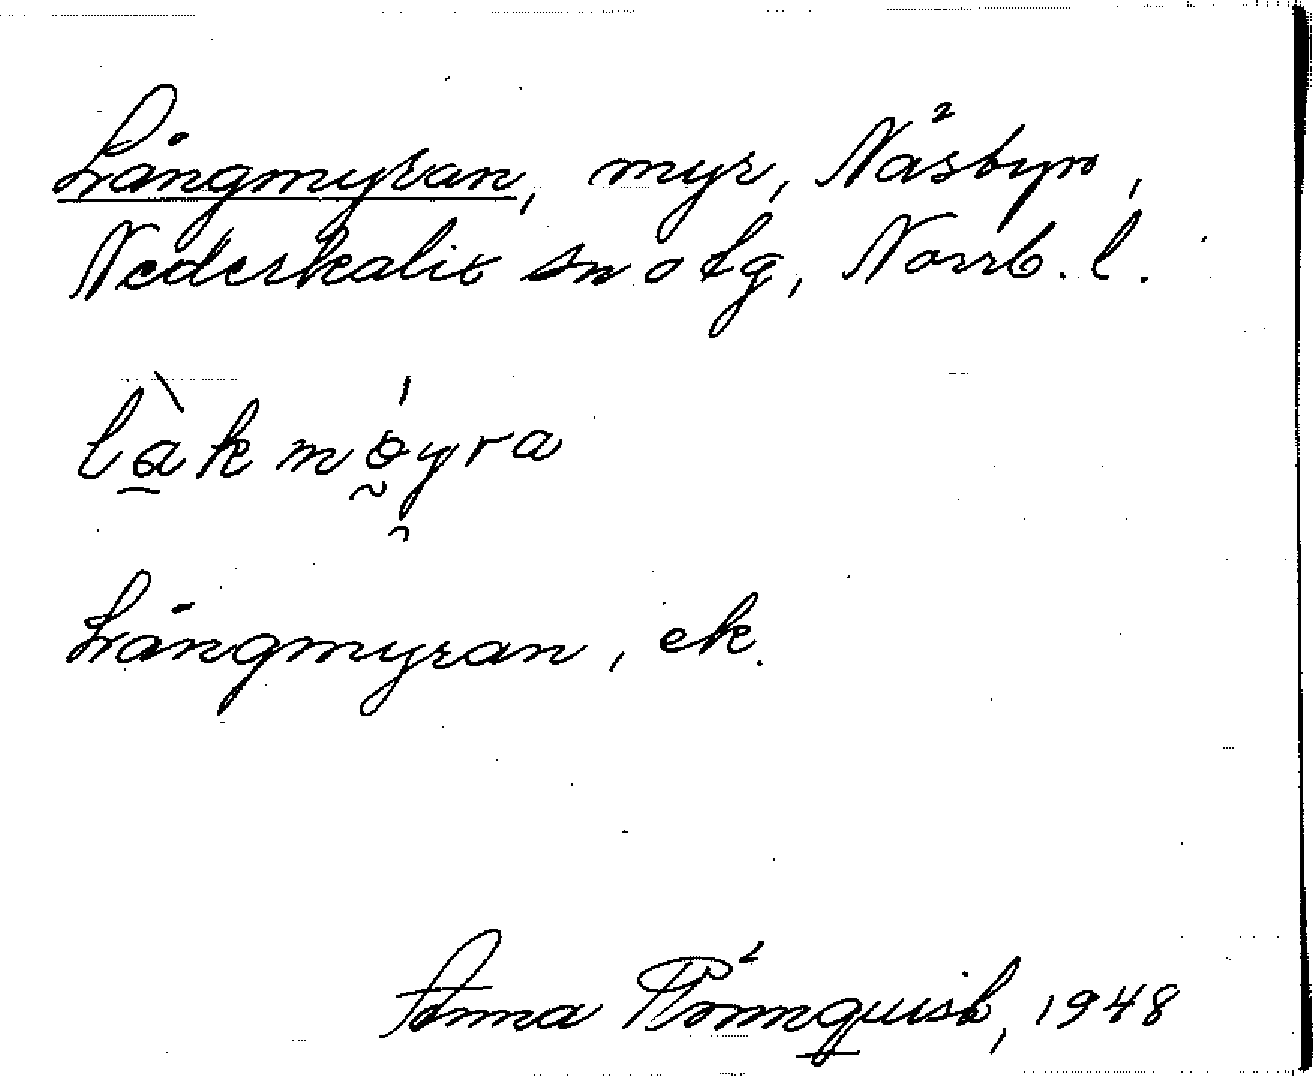 Långmyran, myr, Näsbyn,
Nederkalix sn o tg, Norrb. l.
Långmyran, ek.
Anna Rönnquist, 1948